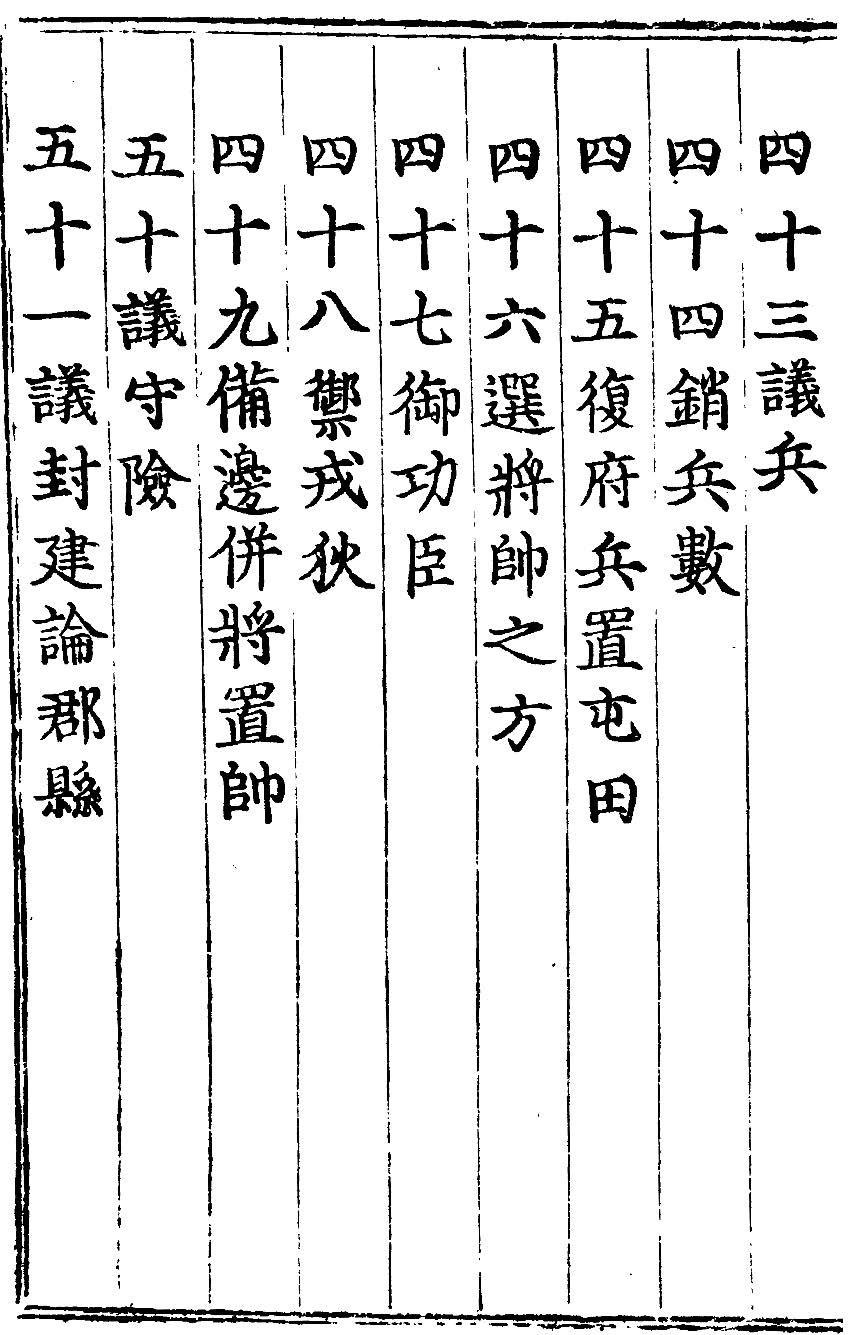 四十三議兵
四十四銷兵數
四十五復府兵置屯田
四十六選將帥之方
四十七御功臣
四十八禦戎狄
四十九備邊併將置帥
五十議守險
五十一議封建論郡縣